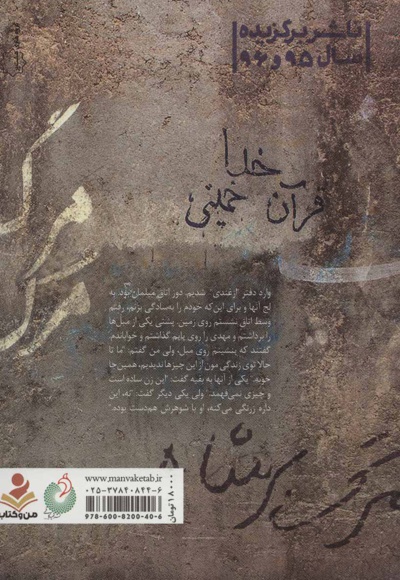 ناشر برگزیده
سال ۹۵ و ۹۶
خدا
قرآن خمینی
مرگ
مرگ
وارد دفتر "ازغندی" شدیم. دور اتاق مبلمان بود. به
لج آنها و برای این‌که خودم را به‌سادگی بزنم، رفتم
وسط اتاق نشستم روی زمین. پشتی یکی از مبل‌ها
را برداشتم و مهدی را روی پایم گذاشتم و خواباندم.
گفتند که بنشینم روی مبل، ولی من گفتم: "ما تا
حالا توی زندگی مون از این چیزها ندیدیم، همین‌جا
خوبه." یکی از آنها به بقیه گفت: "این زن ساده است
و چیزی نمی‌فهمد." ولی یکی دیگر گفت: "نه، این
داره زرنگی می‌کنه، او با شوهرش هم‌دست بوده."
مرگ بر شاه
www.manvaketab.ir
۰۲۵-۳۷۸۴۰۸۴۴-۶
978-600-8200-40-6
۱۸۰۰۰ تومان
من و کتاب